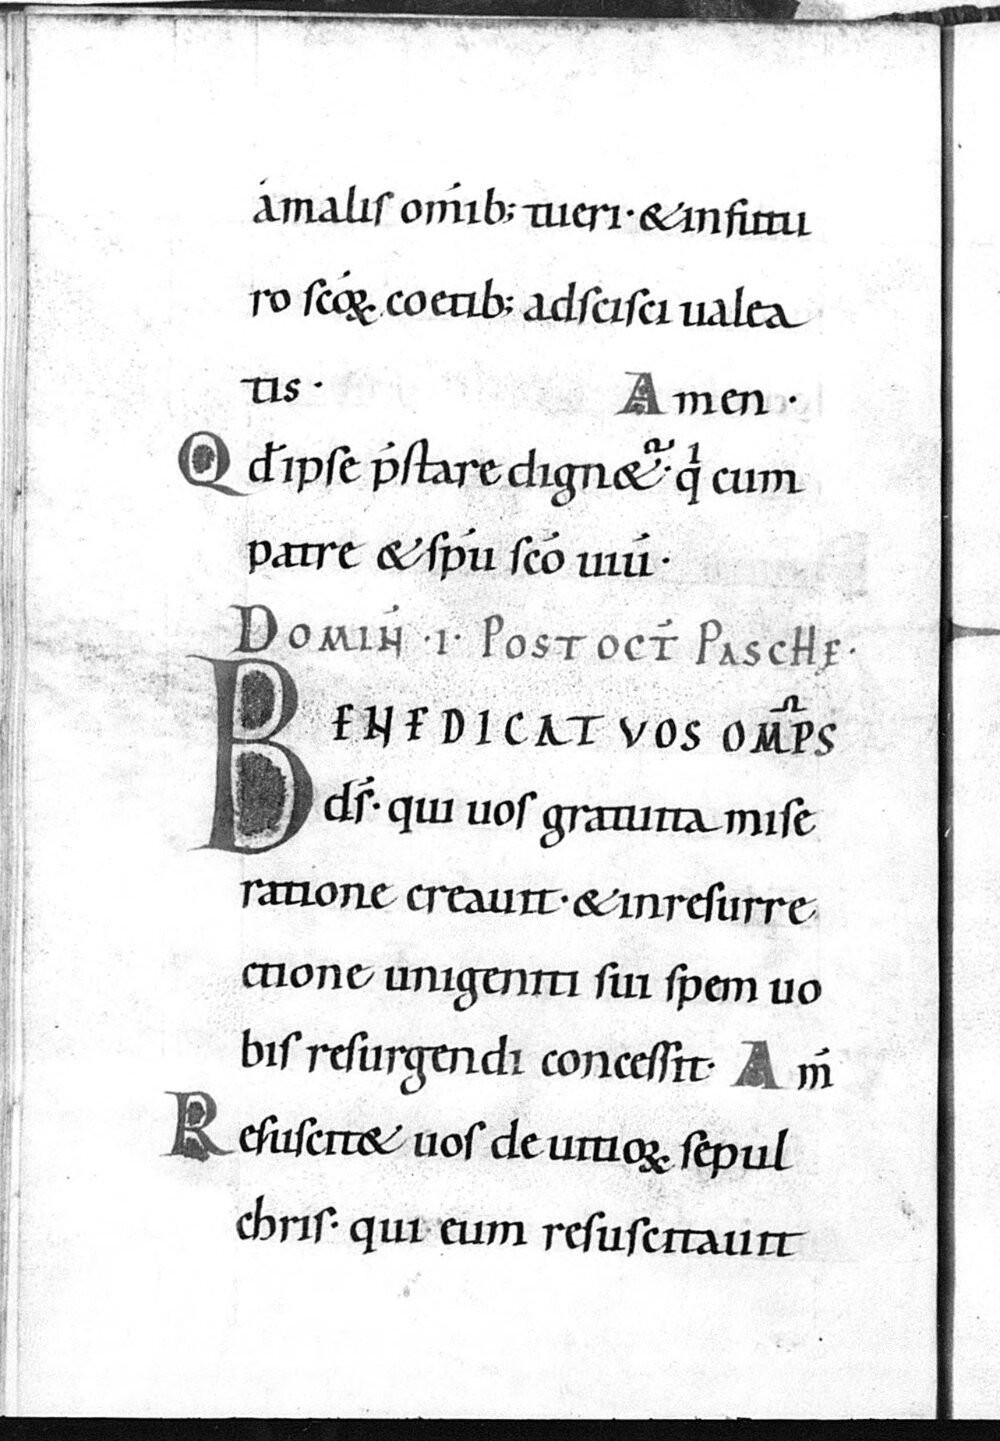 amalis om̅ib; tueri· & in futu
ro sc̅oꝝ coetib; adscisci ualea
tis· Amen·
Qd̅ ipse p̅stare dign&ᷣ· qͥ cum
patre & sp̅u sc̅o uiu̅·
DOMIN̅ ·I· POST OCT̅ PASCHE·
BENEDICAT VOS OM̅PS
ds̅· qui uos gratuita mise
ratione creauit· & in resurre
ctione unigeniti sui spem uo
bis resurgendi concessit· Am̅
Resuscit& uos de uitioꝝ sepul
chris· qui eum resuscitauit